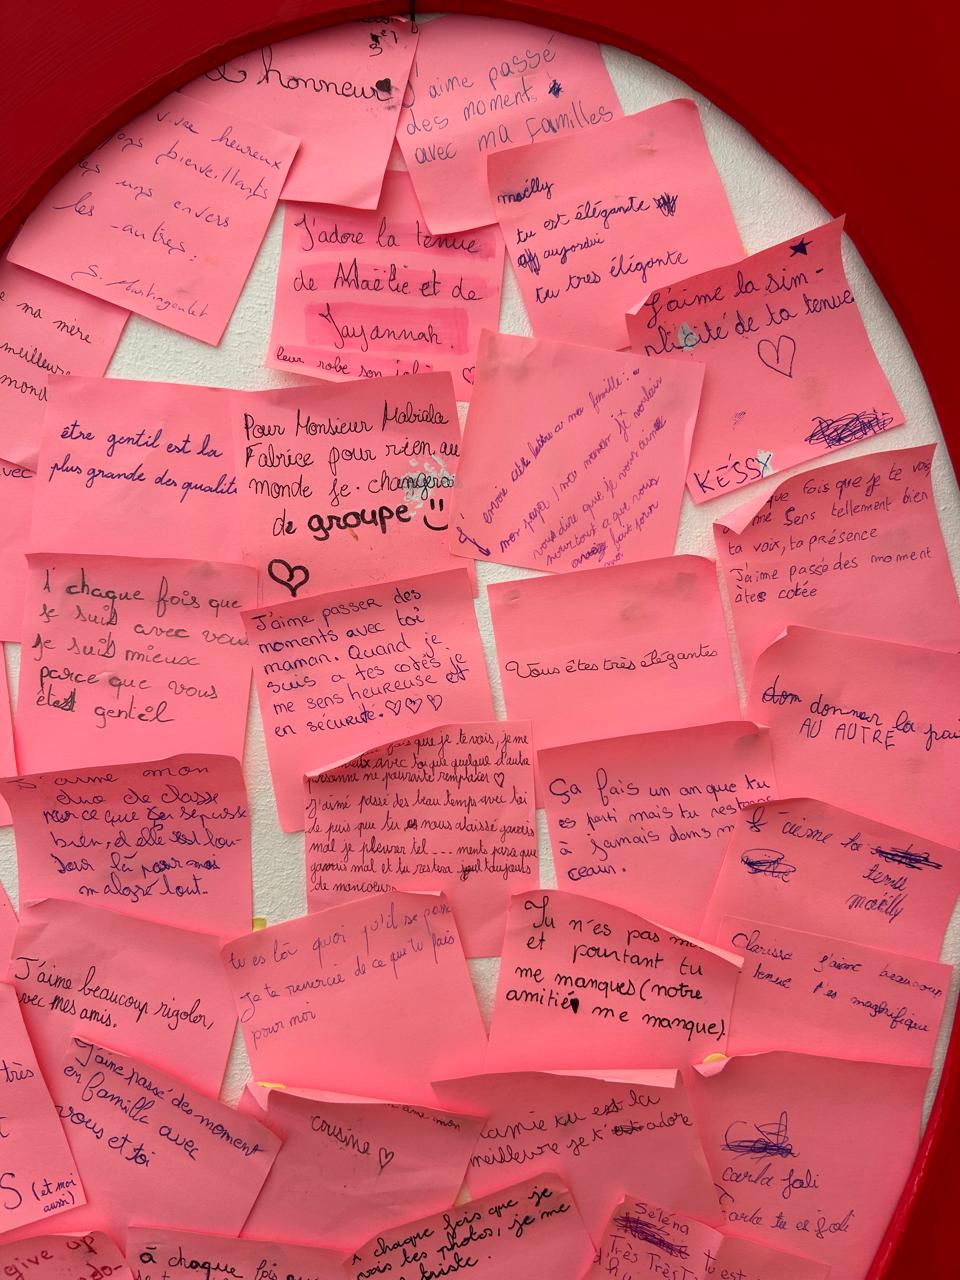 honneur
J'aime passé
des moments
avec ma familles
vivre heureux
bienveillants
les uns envers
les
autres.
maëlly
tu est élégante
aujordui
tu tres élégante
J'adore la tenue
de Maëlie et de
Jayannah.
leur robe son joli
J'aime la sim-
plicité de ta tenue
KÉSSY
ma mère
meilleure
mond
avec
être gentil est la
plus grande des qualité
Pour Monsieur Mabiala
Fabrice pour rien au
monde je changerai
de groupe
que fois que je te vois
me sens tellement bien
ta voix, ta présence
J'aime passé des moment
à tes cotée
à chaque fois que
je suis avec vous
je suis mieux
parce que vous
êtes gentil
J'aime passer des
moments avec toi
maman. Quand je
suis a tes cotés je
me sens heureuse et
en sécurité.
Vous êtes très élégantes
donner la pai
AU AUTRE
J'aime mon
duo de classe
parce que
bien, et elle est tou-
jour là pour moi
malgré tout..
fois que je te vois, je me
avec toi que quelque d'autre
personne ne pourrait remplacer
J'aimé passé des beau temps avec toi
de puis que tu nous a laissé
mal je pleurer tel ... ments parce que
mal et tu restera tout toujours
de mon coeur
Ça fais un an que tu
es parti mais tu restera
à jamais dans m
ceaur.
J'aime ta
tenue
maëlly
J'aime beaucoup rigoler,
avec mes amis.
tu es là quoi qu'il se passe
Je te remercie de ce que tu fais
pour moi
Tu n'es pas m
et pourtant tu
me manques (notre
amitié me manque).
Clarisse J'aime beaucoup
tenue t'es magnifique
très
J'aime passé des moment
en famille avec
vous et toi
S (et moi
aussi)
aime mon
cousine
mamie tu est la
meilleure je t' adore
carla joli
Carla tu es joli
give up
à chaque fois
à chaque fois que je
vois tes photos, je me
triste
Séléna
Très Très